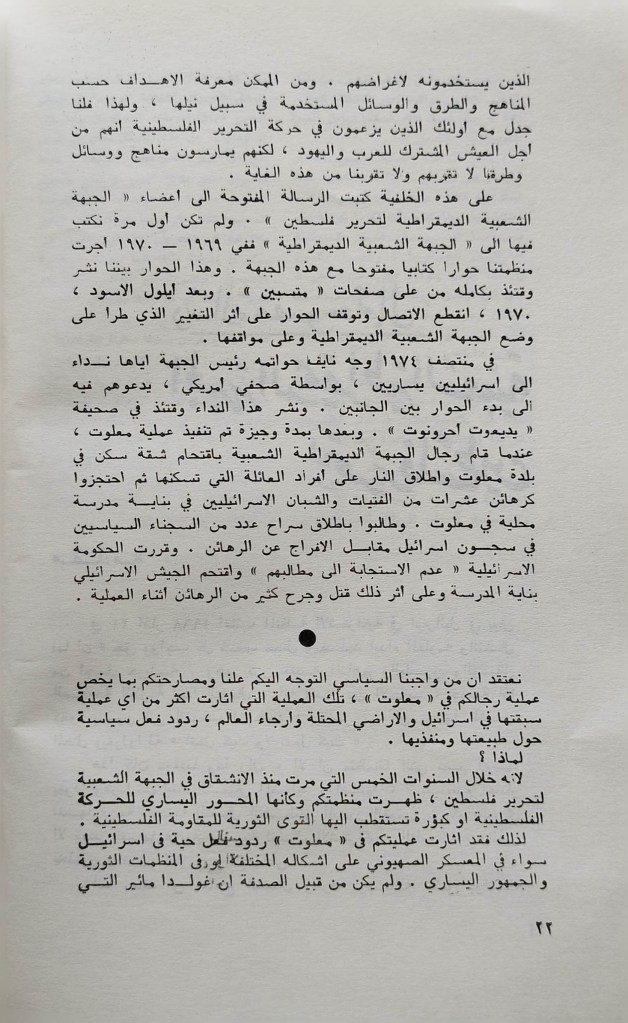 الذين يستخدمونه لاغراضهم . ومن الممكن معرفة الاهـداف حسب
المناهج والطرق والوسائل المستخدمة في سبيل نيلها ، ولهذا فلنا
جدل مع اولئك الذين يزعمون في حركة التحرير الفلسطينية انهم من
أجل العيش المشترك للعرب واليهود ، لكنهم يمارسون مناهج ووسائل
وطرقا لا تقربهم ولا تقربنا من هذه الغاية .
على هذه الخلفية كتبت الرسالة المفتوحة الى أعضاء « الجبهة
الشعبية الديمقراطية لتحرير فلسطين » . ولم تكن أول مرة نكتب
فيها الى « الجبهة الشعبية الديمقراطية » ففي ١٩٦٩ — ١٩٧٠ أجرت
منظمتنا حوارا كتابيا مفتوحا مع هذه الجبهة . وهذا الحوار بيننا نشر
وقتئذ بكامله من على صفحات « متسبين » . وبعد أيلول الاسود ،
١٩٧٠ ، انقطع الاتصال وتوقف الحوار على أثر التغيير الذي طرأ على
وضع الجبهة الشعبية الديمقراطية وعلى مواقفها .
في منتصف ١٩٧٤ وجه نايف حواتمه رئيس الجبهة اياها نـداء
الى اسرائيليين يساريين ، بواسطة صحفي أمريكي ، يدعوهم فيه
الى بدء الحوار بين الجانبين . ونشر هذا النداء وقتئذ في صحيفة
« يديعوت أحرونوت » . وبعدها بمدة وجيزة تم تنفيذ عملية معلوت ،
عندما قام رجال الجبهة الديمقراطية الشعبية باقتحام شقة سكن في
بلدة معلوت واطلاق النار على أفراد العائلة التي تسكنها ثم احتجزوا
كرهائن عشرات من الفتيات والشبان الاسرائيليين في بنايـة مدرسة
محلية في معلوت . وطالبوا باطلاق سراح عدد من السجناء السياسيين
في سجـون اسرائيل مقابـل الافراج عن الرهائن . وقررت الحكومة
الاسرائيلية « عدم الاستجابة الى مطالبهم » واقتحم الجيش الاسرائيلي
بناية المدرسة وعلى أثر ذلك قتل وجرح كثير من الرهائن أثناء العملية .
نعتقد ان من واجبنا السياسي التوجه اليكم علنا ومصارحتكم بما يخص
عملية رجالكم في « معلوت » ، تلك العملية التي اثارت اكثر من اي عملية
سبقتها في اسرائيل والاراضي المحتلة وأرجاء العالم ، ردود فعل سياسية
حول طبيعتها ومنفذيها .
لماذا ؟
لانه خلال السنوات الخمس التي مرت منذ الانشقاق في الجبهة الشعبية
لتحرير فلسطين ، ظهـرت منظمتكم وكأنها المحـور اليساري للحـركة
الفلسطينية او كبؤرة تستقطب اليها القوى الثورية للمقاومة الفلسطينية .
لذلك فقد اثارت عمليتكم في « معلوت » ردود فعل حية في اسرائيـل
سواء في المعسكر الصهيوني على اشكاله المختلفة او في المنظمات الثورية
والجمهور اليساري . ولم يكن من قبيل الصدفة ان غولـدا مائير التـي
٢٢